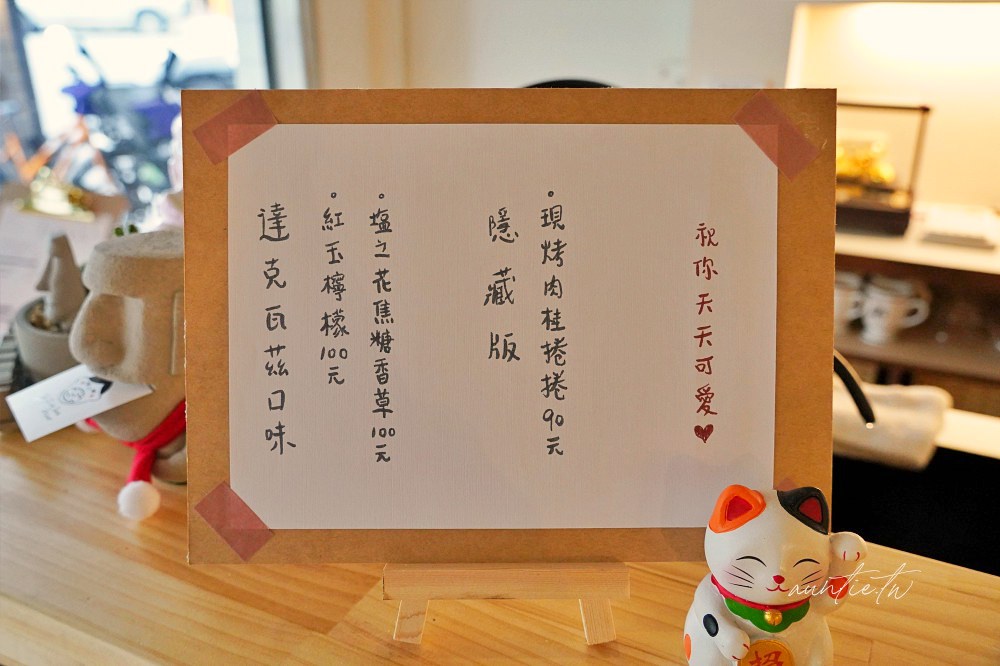 達克瓦茲口味
。紅玉檸檬100元
。塩之花焦糖香草100元
隱藏版
。現烤肉桂捲捲90元
祝你天天可愛♥
auntie.tw
招